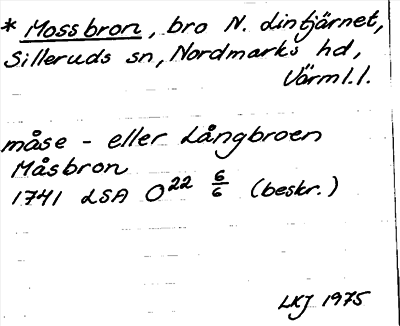 * Mossbron, bro N. Lintjärnet,
Silleruds sn, Nordmarks hd,
Värml.l.
måse - eller Långbroen
Måsbron
1741 LSA O²² 6/6 (beskr.)
LKJ 1975